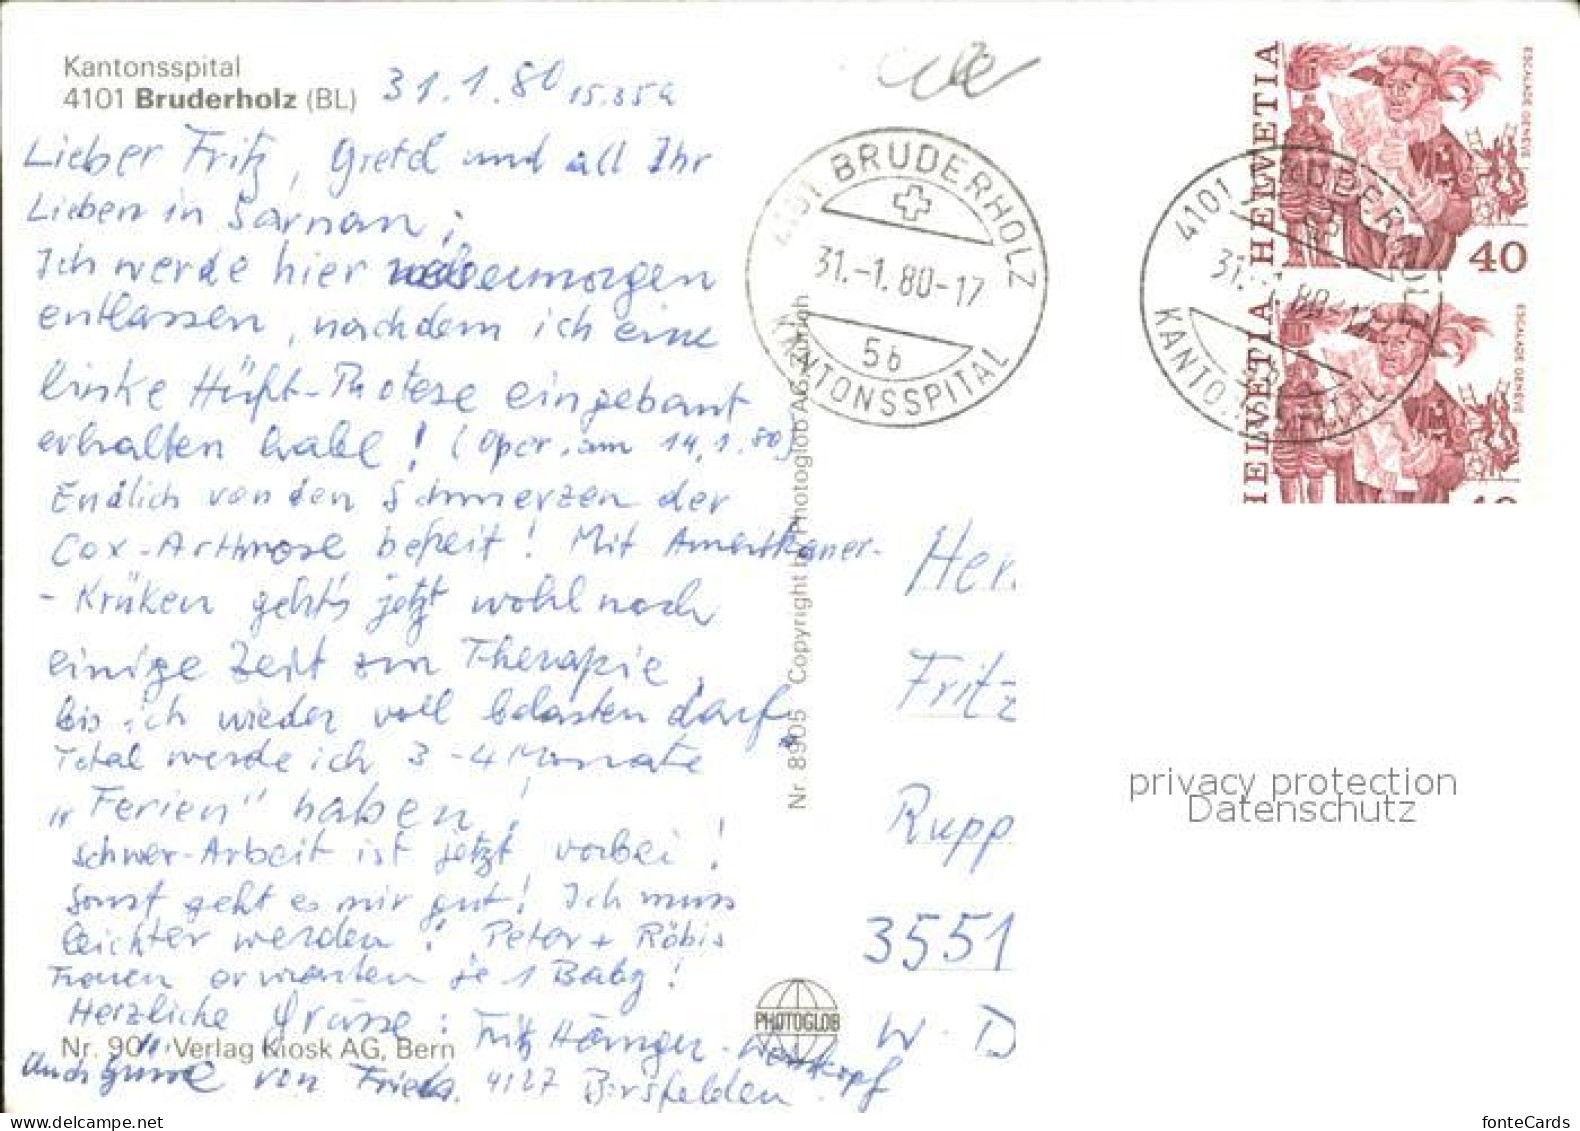 Kantonsspital
4101 Bruderholz (BL)
31.1.80 15.35h
Lieber Fritz, Gretel und all Ihr
Lieben in Sarnau;
Ich werde hier übermorgen
entlassen, nachdem ich eine
linke Hüft-Photese eingebaut
erhalten habe! (Oper. am 14.1.80)
Endlich von den Schmerzen der
Cox-Arthrose befreit! Mit Amerikaner-
- Krüken geht's jetzt wohl noch
einige Zeit zur Therapie,
bis ich wieder voll belasten darf,
Total werde ich 3-4 Monate
"Ferien" haben!
Schwer-Arbeit ist jetzt vorbei!
Sonst geht es mir gut! Ich muss
leichter werden! Peter + Röbis
Frauen erwarten je 1 Baby!
Herzliche Grüsse: Fritz
Nr. 901 Verlag Kiosk AG, Bern
von Frieda. 4127 Birsfelden
Nr. 8905 Copyright by Photoglob AG, Zürich
PHOTOGLOB
4101 BRUDERHOLZ
31.-1.80-17
5b
KANTONSSPITAL
4101 BRUDERHOLZ
31.-1.80-17
KANTONSSPITAL
HELVETIA
ESCALADE GENEVE
40
HELVETIA
ESCALADE GENEVE
40
HELVETIA
Herr
Fritz
Rupp
3551
W-D
privacy protection
Datenschutz
fonteCards